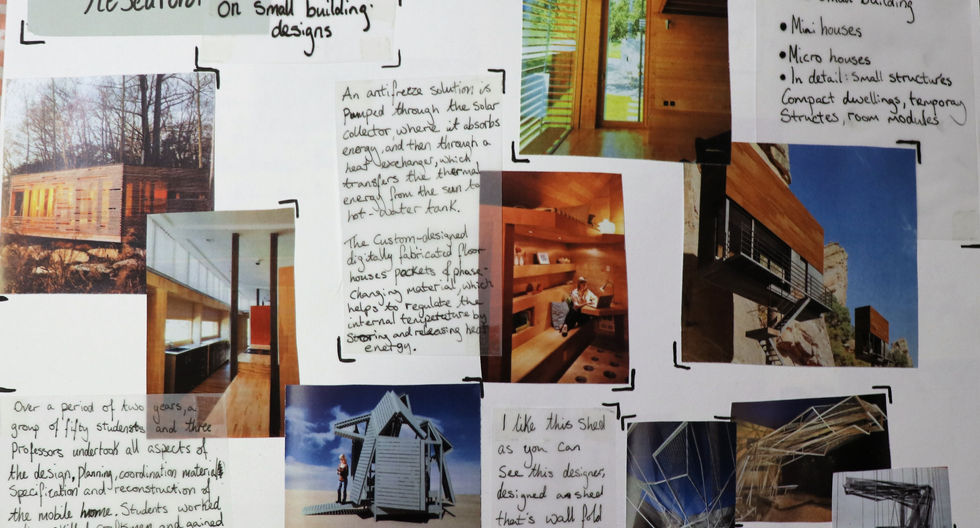 Research
On small building
designs
small building
• Mini houses
• Micro houses
• In detail: small structures
Compact dwellings, temporary
Structes, room modules
An antifreeze solution is
Pumped through the solar
collector where it absorbs
energy, and then through a
heat exchanger, which
transfers the thermal
energy from the sun to
hot-water tank.
The Custom-designed
digitally fabricated floor
houses packets of phase-
Changing material, which
helps to regulate the
internal tempetature by
Storing and releasing heat
energy.
Over a period of two years, a
group of fifty students and three
Professors undertook all aspects of
the design, Planning, coordination materials
Specification and reconstruction of
the mobile home. Students worked
craftsmen and gained
I like this Shed
as you can
See this designer,
designed a shed
that's wall fold